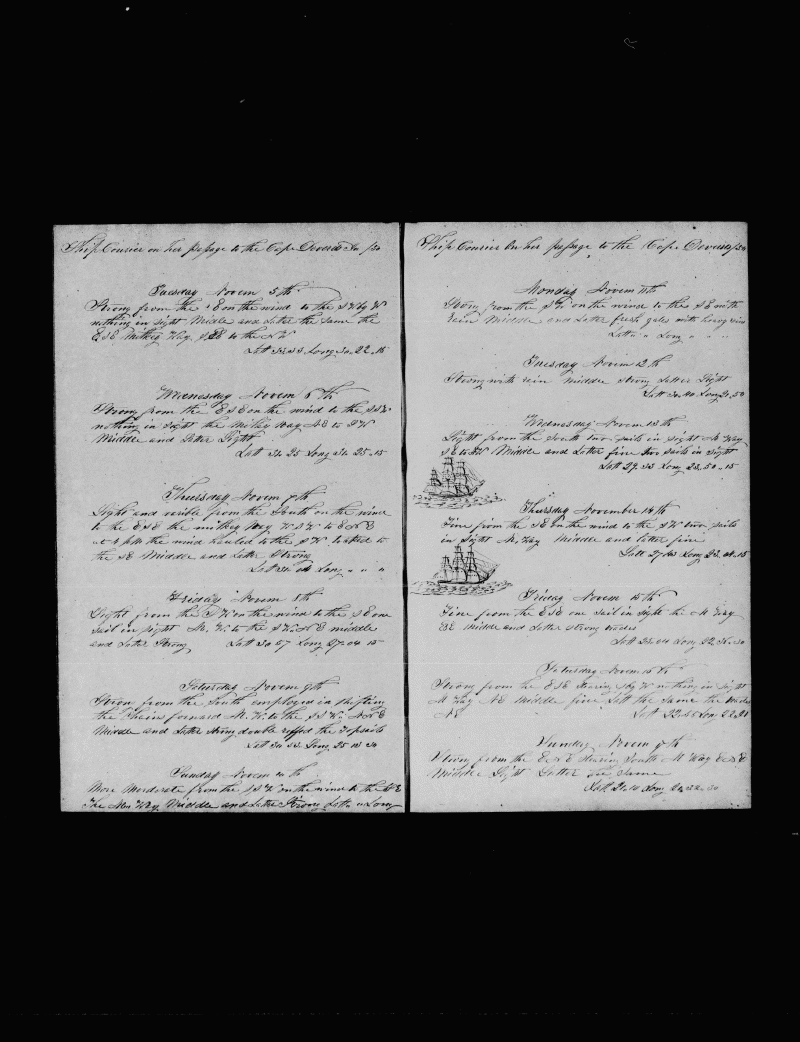 Ship Courier on her passage to the Cape Deverds
Tuesday Novem 5th
Strong from the SE on the wind to the SW by W
nothing in sight Middle and Latter the same the
ESE Milkey Way SE to the NW
Latt 33.53 Long 30.22.15
Wednesday Novem 6th
Strong from the ESE on the wind to the SSW
nothing in sight the Milky way NE to SW
Middle and Latter Light
Latt 34.25 Long 34.25.15
Thursday Novem 7th
Light and verible from the South on the wind
to the ESE the milkey way WSW to ENE
at 4 PM the wind hauled to the SW tacked to
the SE Middle and Latter Strong
Latt 34 04 Long " " "
Friday Novem 8th
Light from the SW on the wind to the SE one
sail in sight M. W. to the SW NE middle
and Latter Strong Latt 30 57 Long 27-04 15
Saturday Novem 9th
Stron from the South employed in shifting
the Chain forward M. W. to the SSW NNE
Middle and Latter strong double reffed the Topsails
Latt 30 53 Long 25 13 30
Sunday Novem 10th
More Moderate from the SSW on the wind to the
The M Way Middle and Latter Strong Latt " Long
Ship Courier On her passage to the Cape Deverds
Monday Novem 11th
Strong from the SW on the wind to the SE with
rain Middle and Latter fresh gales with heavy
Latt " " Long " " "
Tuesday Novem 12th
Strong with rain middle strong Latter Light
Latt 30.40 Long 21.50
Wednesday Novem 13th
Light from the South two sails in sight M Way
SE to NW Middle and Latter fine two sails in sight
Latt 29.33 Long 23.50.15
Thursday November 14th
Fine from the SE on the wind to the SW two sails
in sight M. Way Middle and latter fine
Latt 27 43 Long 23.04.15
Friday Novem 15th
Fine from the ESE one sail in sight the M Way
Middle and Latter strong trades
Latt 25.04 Long 22 36.30
Saturday Novem 16th
Strong from the ESE Stearing SbyW nothing in sight
M Way NE Middle fine Latt the same the
NE Latt 22.45 Long 22.20
Sunday Novem 17th
Strong from the ENE Stearing South M Way
Middle Light Latter the Same
Latt 21.10 Long